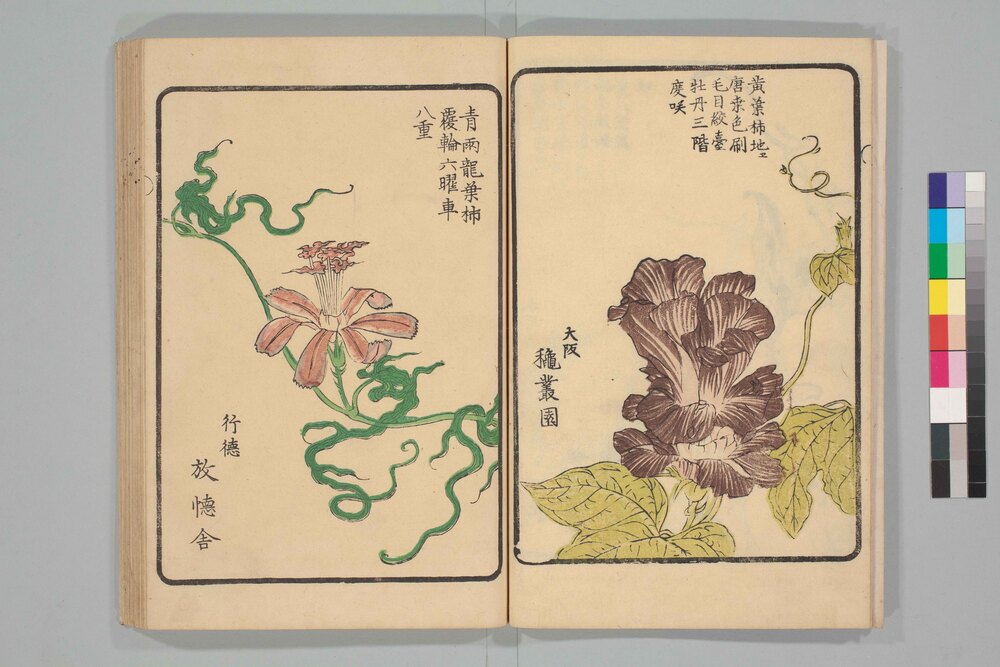 黄葉柿地ヱ
唐桒色刷
毛目絞臺
牡丹三階
度咲
大阪
穐叢園
青両龍葉柿
覆輪六曜車
八重
行徳
放憶舎